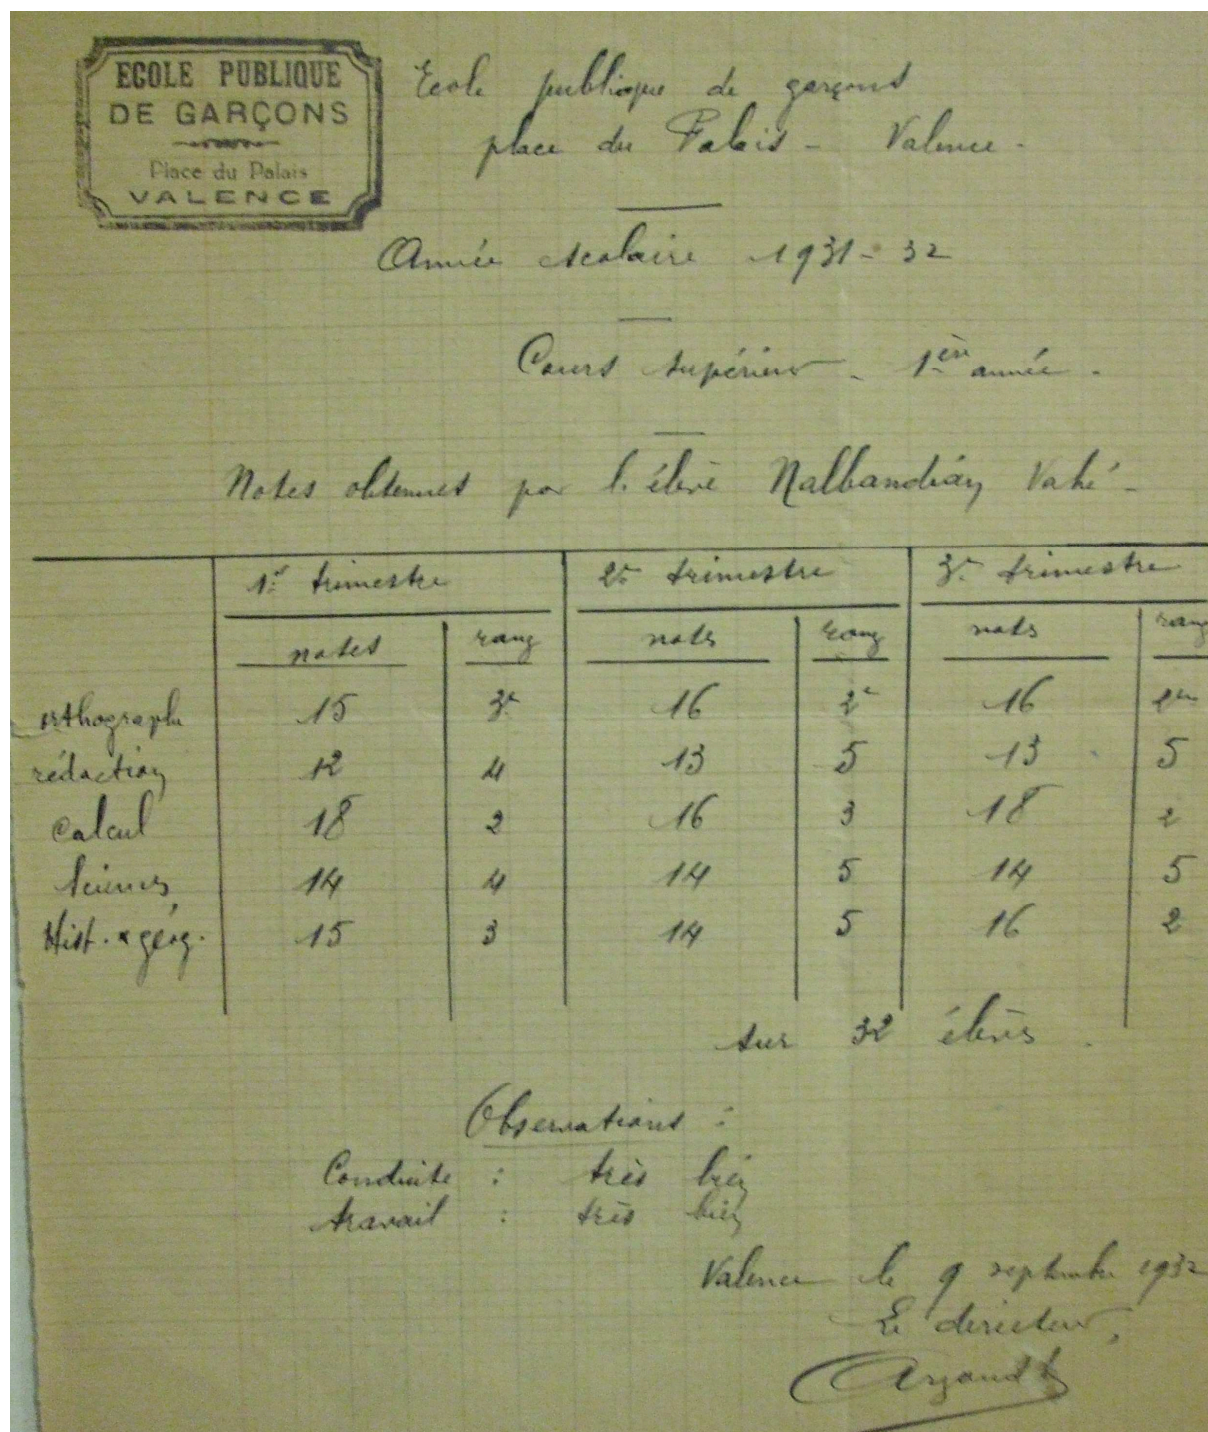 ECOLE PUBLIQUE
DE GARÇONS
Place du Palais
VALENCE
Ecole publique de garçons
place du Palais - Valence -
Année scolaire 1931-32
Cours supérieur - 1ère année -
Notes obtenues par l'élève Nalbandian Vahé -
1er trimestre 2e trimestre 3e trimestre
notes rang notes rang notes rang
orthographe 15 3e 16 2e 16
rédaction 12 4 13 5 13 5
Calcul 18 2 16 3 18 2
Sciences 14 4 14 5 14 5
Hist. & géog. 15 3 14 5 16 2
sur 32 élèves
Observations :
Conduite : très bien
travail : très bien
Valence le 9 septembre 1932
Le directeur,